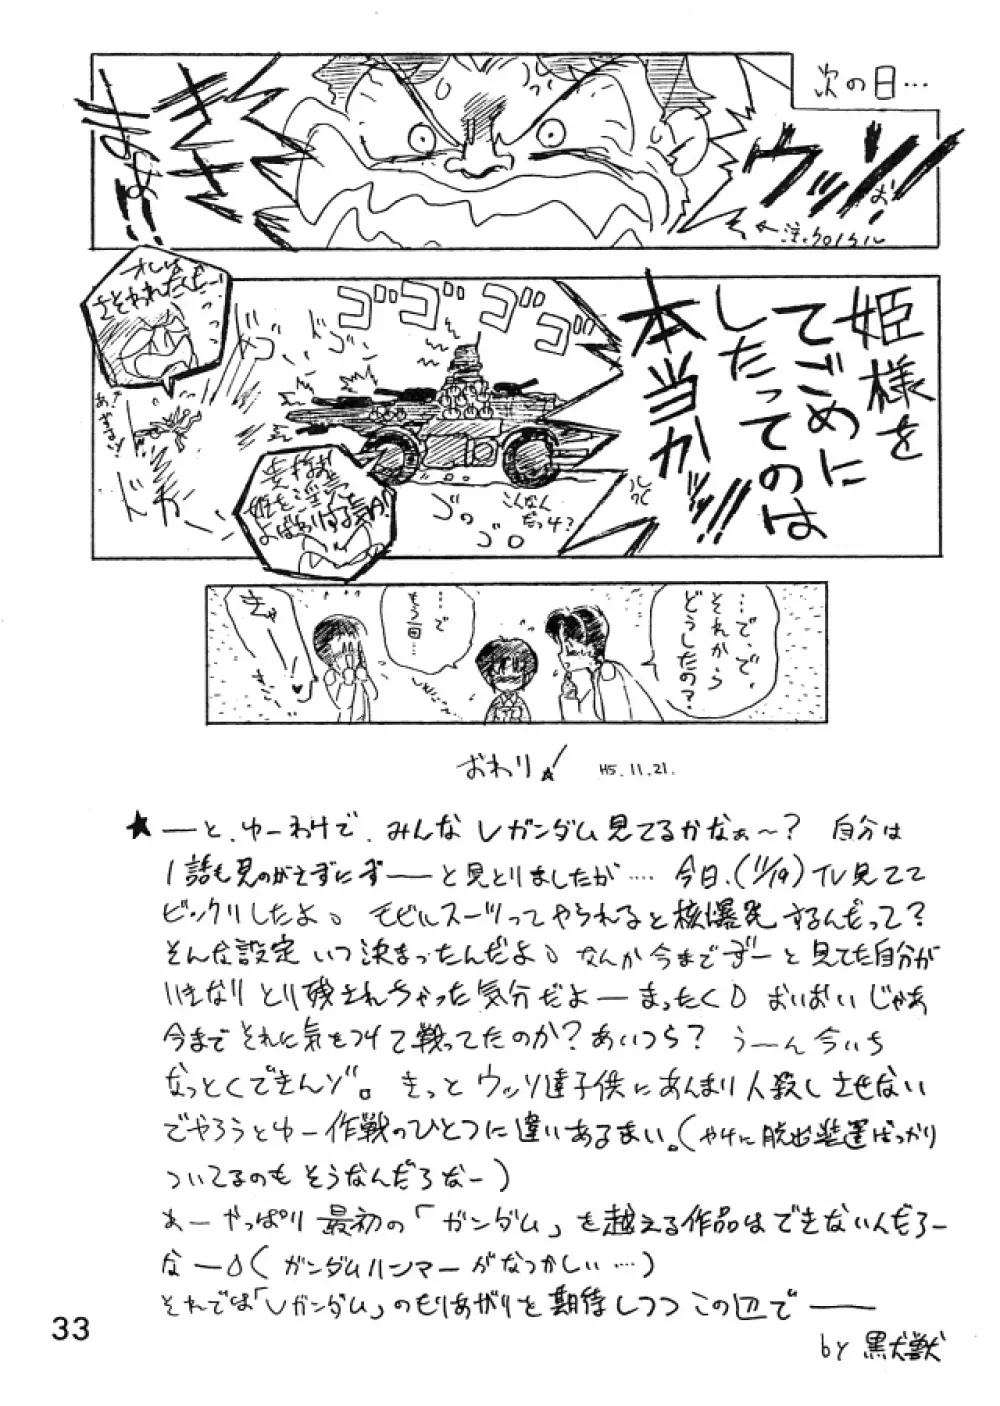 次の日…
ウッソ!
きさまぁ!!
←注.クロノクル
姫様を
てごめに
したってのは
本当か!!
ゴゴゴゴ
オレは
さそわれたんだー!
ドカ
こんなん
だっけ?
…で、で、
それから
どうしたの?
…で
もう一回…
きゃー
おわり! H5.11.21.
★ーと、ゆーわけで、みんなVガンダム見てるかなぁ〜? 自分は
1話も見のがさずにずーーと見とりましたが…. 今日、(11/19) TV見てて
ビックリしたよ。 モビルスーツってやられると核爆発するんだって?
そんな設定 いつ決まったんだよ。なんか今までずーと見てた自分が
いきなりとり残されちゃった気分だよー まったく。 おいおいじゃあ
今までそれに気をつけて戦ってたのか?あいつら? うーん今いち
なっとくできんゾ。きっとウッソ達子供にあんまり人殺しさせない
でやろうとゆー作戦のひとつに違いあるまい。(やけに脱出装置ばっかり
ついてるのもそうなんだろなー)
あーやっぱり最初の「ガンダム」を越える作品はできないんだろー
なー。(ガンダムハンマーがなつかしい…)
それでは「Vガンダム」のもりあがりを期待しつつこの辺で ——
by 黒犬獣
33